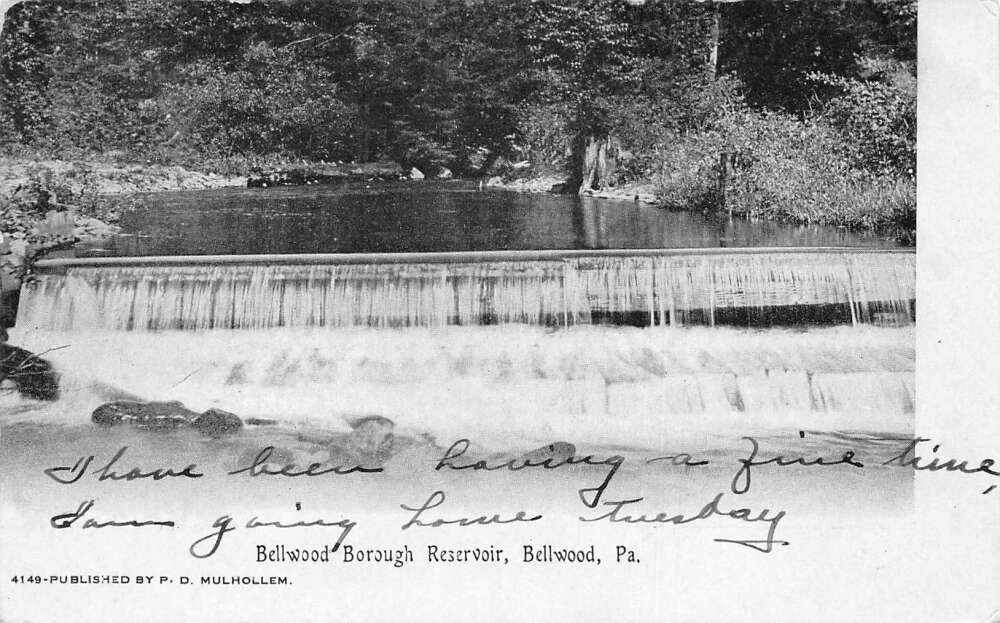 I have been having a fine time,
I am going home tuesday
Bellwood Borough Reservoir, Bellwood, Pa.
4149-PUBLISHED BY P. D. MULHOLLEM.